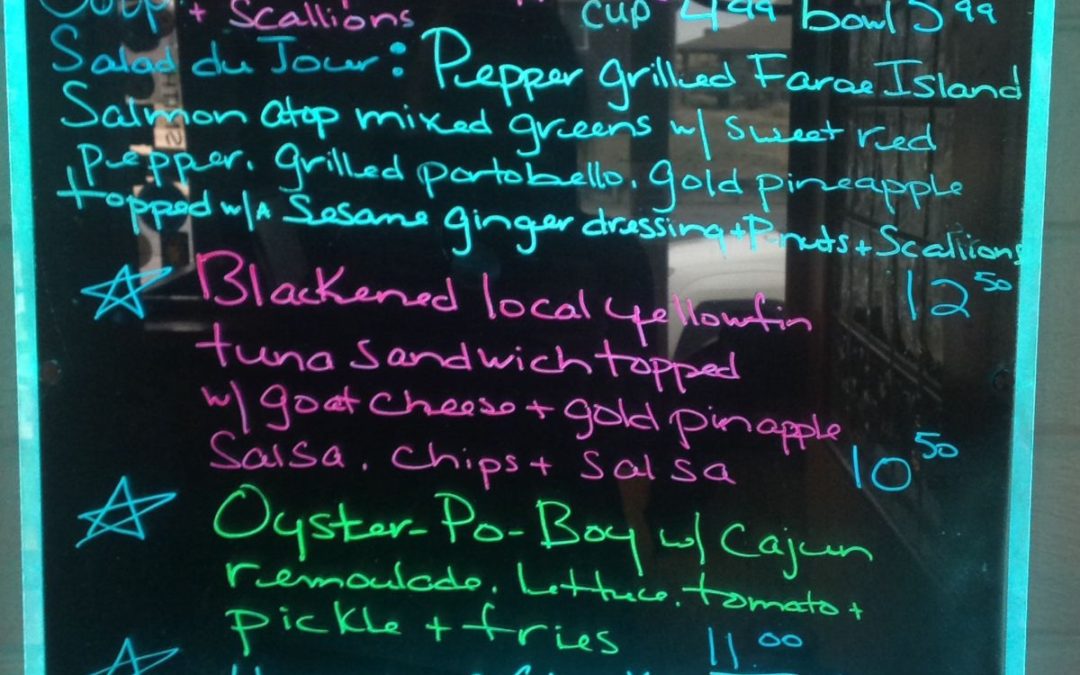 + Scallions cup 4.99 bowl 5.99
Salad du Jour: Pepper grilled Faroe Island
Salmon atop mixed greens w/ sweet red
pepper. grilled portobello. gold pineapple
topped w/A Sesame ginger dressing + P-nuts + Scallions
12.50
Blackened local yellowfin
tuna sandwich topped
w/ goat cheese + gold pinapple
Salsa. chips + salsa 10.50
Oyster-Po-Boy w/ Cajun
remoulade. Lettuce. tomato +
pickle + fries 11.00